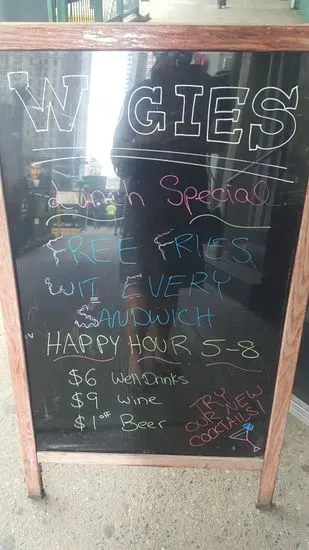 WOGIES
Lunch Special
FREE FRIES
WIT EVERY
SANDWICH
HAPPY HOUR 5-8
$6 Well Drinks
$9 Wine
$1 off Beer
TRY
OUR NEW
COCKTAILS!